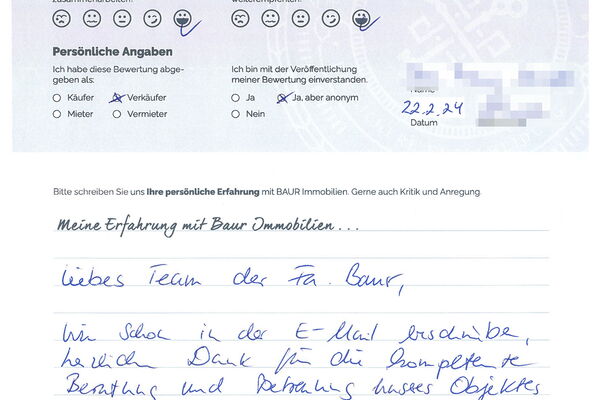 zusammenarbeiten. weiterempfehlen.
Persönliche Angaben
Ich habe diese Bewertung abge-
geben als:
Käufer Verkäufer
Mieter Vermieter
Ich bin mit der Veröffentlichung
meiner Bewertung einverstanden.
Ja Ja, aber anonym
Nein
Name
22.2.24
Datum
Bitte schreiben Sie uns Ihre persönliche Erfahrung mit BAUR Immobilien. Gerne auch Kritik und Anregung.
Meine Erfahrung mit Baur Immobilien...
Liebes Team der Fa. Baur,
Wie schon in der E-Mail beschrieben,
herzlichen Dank für die kompetente
Beratung und Betreuung unseres Objektes